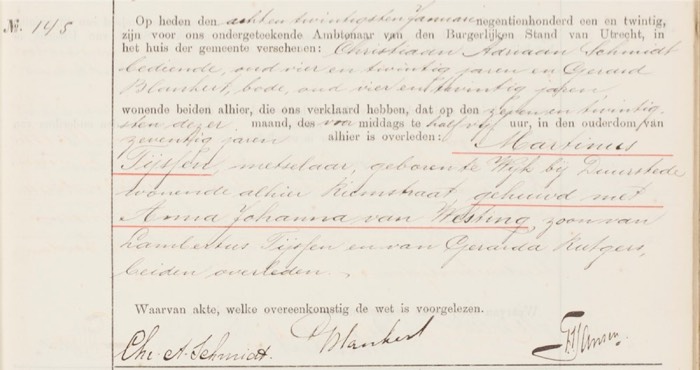 No. 145
Op heden den acht en twintigsten Januari negentienhonderd een en twintig,
zijn voor ons ondergeteekende Ambtenaar van den Burgerlijken Stand van Utrecht, in
het huis der gemeente verschenen: Christiaan Adriaan Schmidt
bediende, oud vier en twintig jaren en Gerard
Blankert, bode, oud vier en twintig jaren,
wonende beiden alhier, die ons verklaard hebben, dat op den zeven en twintig-
sten dezer maand, des voor middags te half vijf uur, in den ouderdom van
zeventig jaren alhier is overleden: Martinus
Tijssen, metselaar, geboren te Wijk bij Duurstede
wonende alhier Riemstraat, gehuwd met
Anna Johanna van Westing, zoon van
Lambertus Tijssen en van Gerarda Rutgers,
beiden overleden.
Waarvan akte, welke overeenkomstig de wet is voorgelezen.
Chr. A. Schmidt. Blankert Jansen.